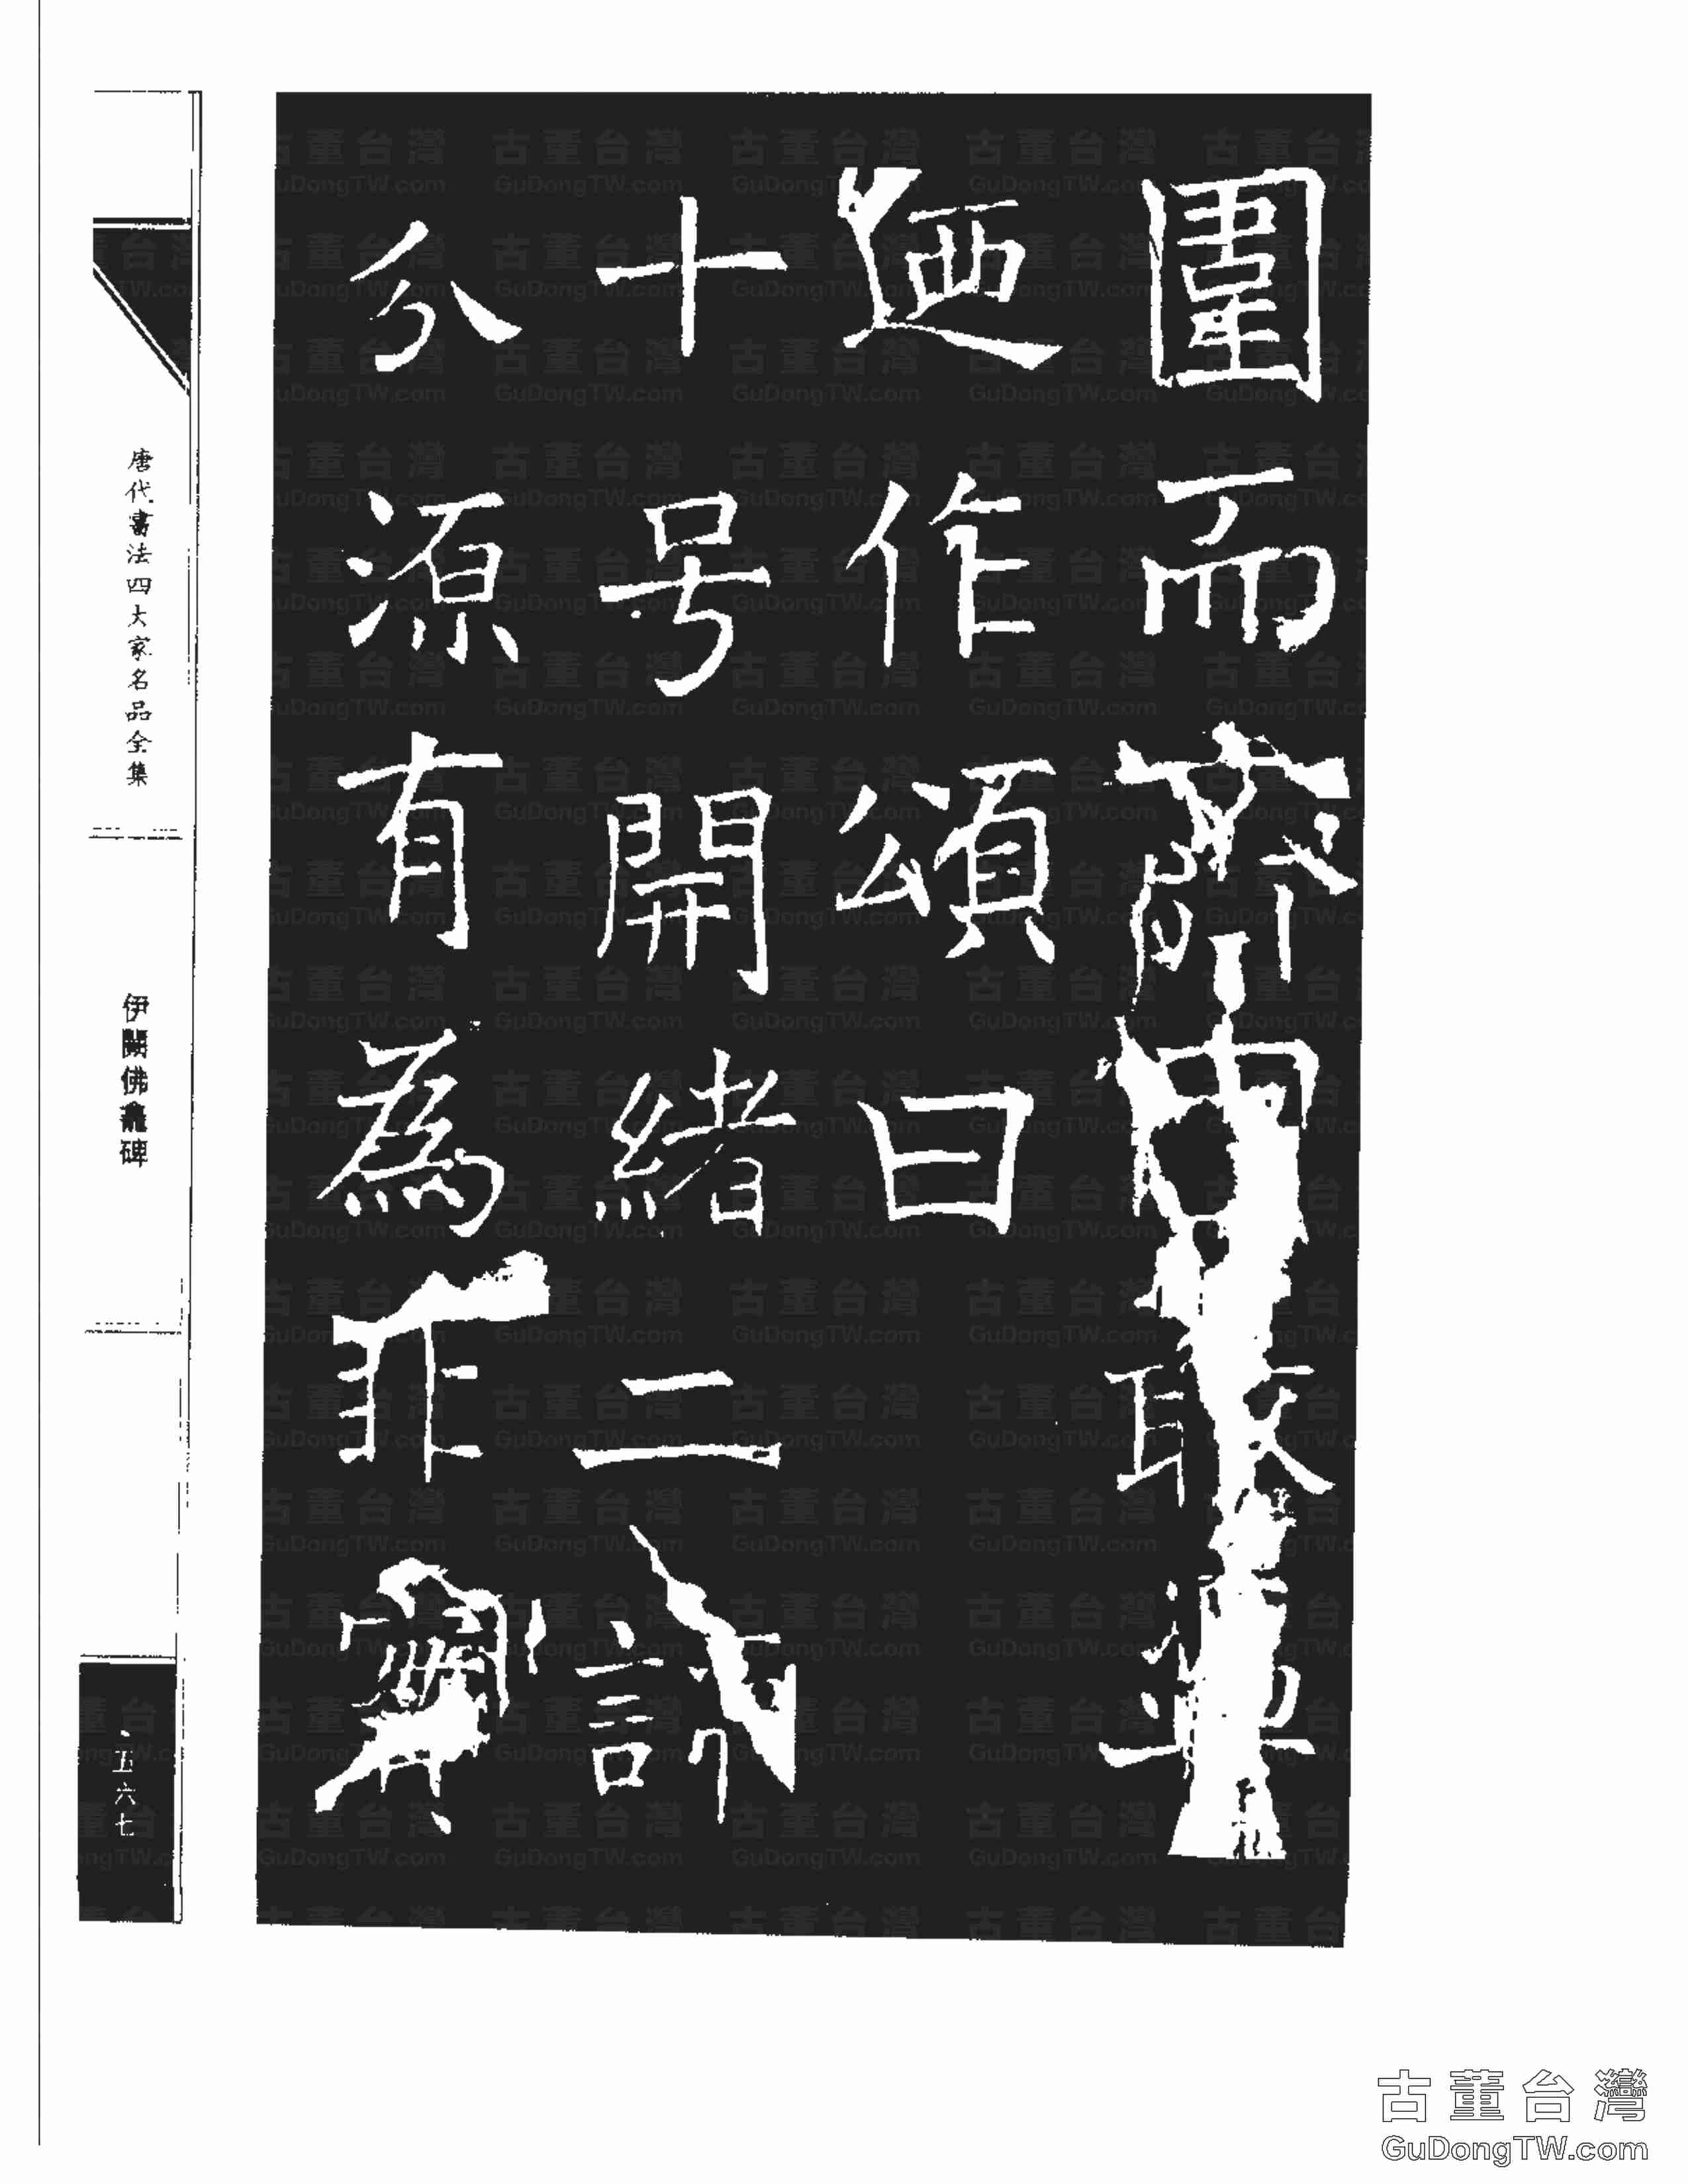 圍而齊敢
迺作頌曰
十号開緒二諦
分源有為非實
唐代書法四大家名品全集
伊闕佛龕碑
五六七
古董台灣
GuDongTW.com